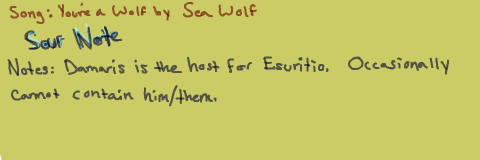 Song: You're a Wolf by Sea Wolf
Sour Note
Notes: Damaris is the host for Esuritio. Occasionally
cannot contain him/them.